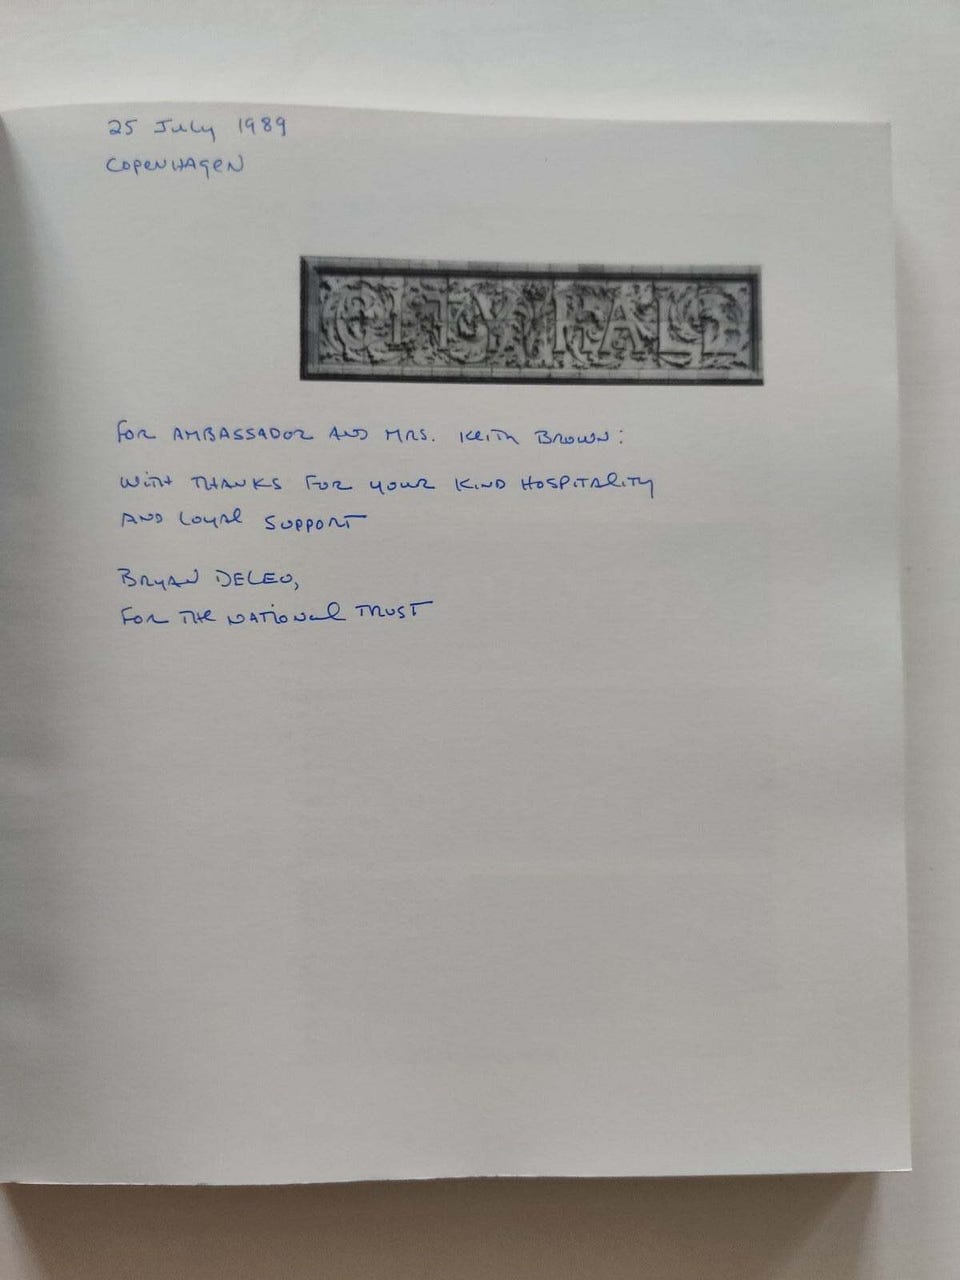 25 July 1989
Copenhagen
CITY HALL
For Ambassador and Mrs. Keith Brown:
With thanks for your kind hospitality
and loyal support
Bryan Deleo,
For the National Trust